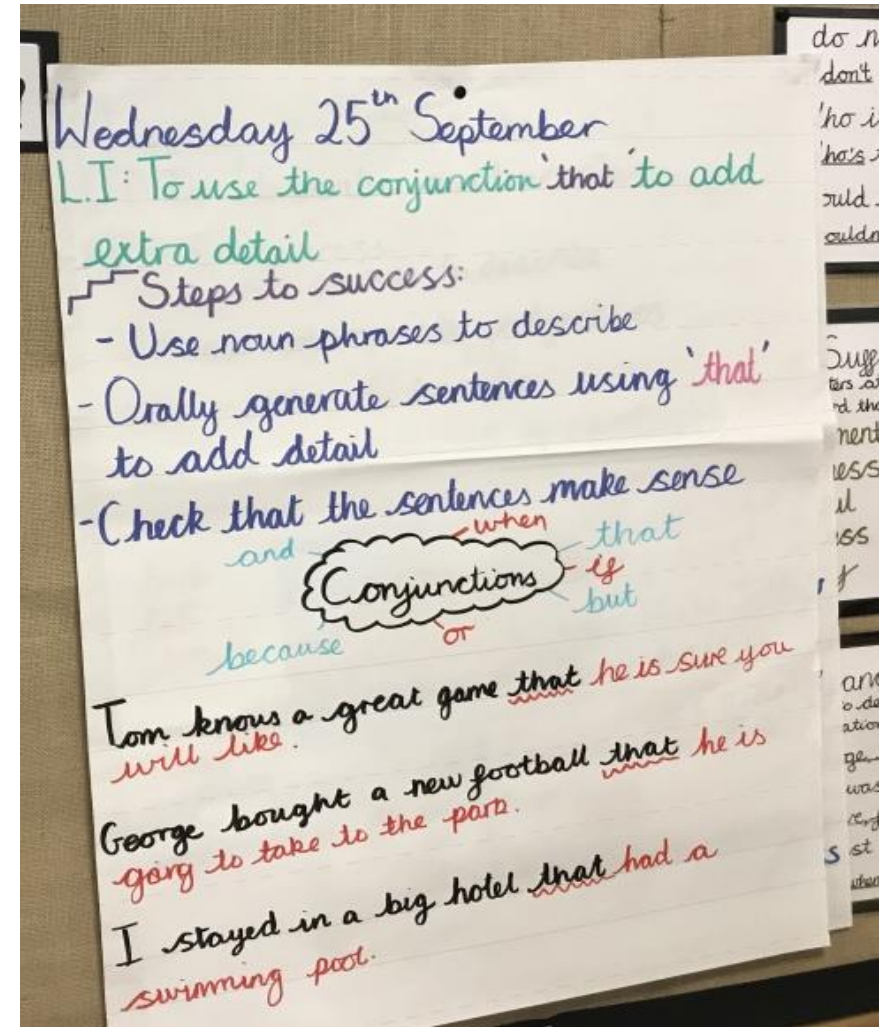 Wednesday 25th September
L.I: To use the conjunction 'that' to add
extra detail
Steps to success:
- Use noun phrases to describe
- Orally generate sentences using 'that'
to add detail
- Check that the sentences make sense
and
when
that
Conjunctions
if
but
because
or
Tom knows a great game that he is sure you
will like.
George bought a new football that he is
going to take to the park.
I stayed in a big hotel that had a
swimming pool.
do n
don't
who's